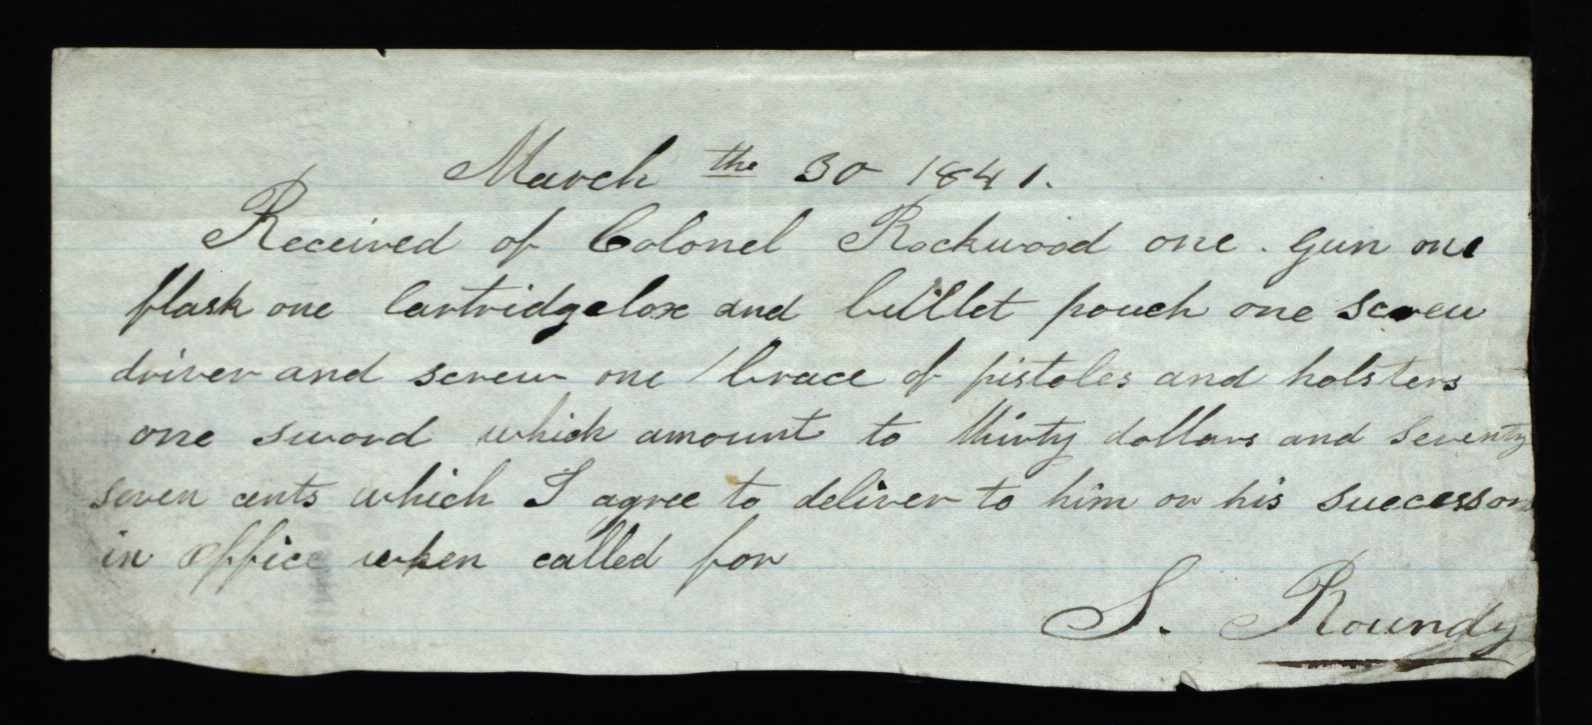 March the 30 1841.
Received of Colonel Rockwood one gun one
flask one Cartridgebox and bullet pouch one screw
driver and screw one brace of pistoles and holsters
one sword which amount to thirty dollars and seventy
seven cents which I agree to deliver to him or his successor
in office when called for
S. Roundy